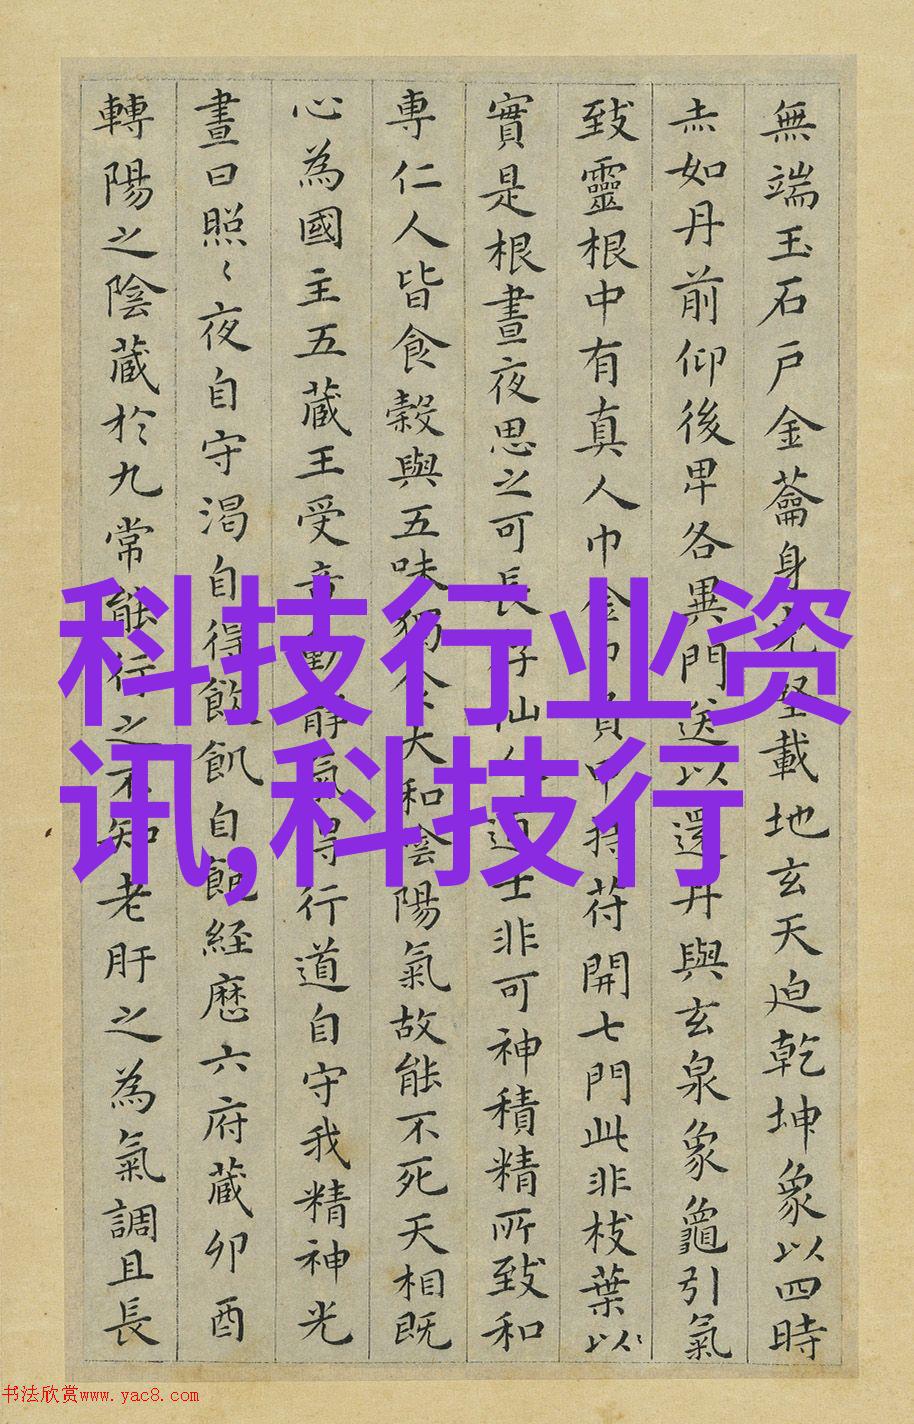 無端玉石戶金籥身完堅載地玄天迫乾坤象以四時
赤如丹前仰後卑各異門送以還丹與玄泉象龜引氣
致靈根中有真人巾金巾負甲持符開七門此非枝葉以〻
實是根晝夜思之可長存仙人道士非可神積精所致和
專仁人皆食穀與五味獨食大和陰陽氣故能不死天相既
心為國主五藏王受意動靜氣得行道自守我精神光
晝日照〻夜自守渴自得飲飢自飽経歷六府藏卯酉
轉陽之陰蔵於九常能行之不知老肝之為氣調且長
科技行业资
讯,科技行
书法欣赏www.yac8.com